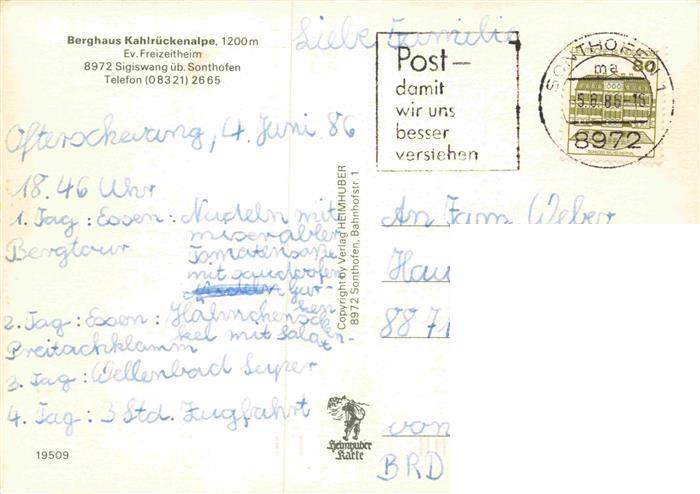 Berghaus Kahlrückenalpe, 1200m
Ev. Freizeitheim
8972 Sigiswang üb. Sonthofen
Telefon (0 83 21) 26 65
Liebe Familie
Post-
damit
wir uns
besser
verstehen
SONTHOFEN 1
ma
-5.6.86-16
8972
80
Ofterschwang, 4. Juni 86
18.46 Uhr
1. Tag: Essen: Nudeln mit
miserabler
Bergtour Tomatensoße
mit
Gur-
ken
2. Tag: Essen: Hähnchensc
kel mit Salat
Breitachklamm
3. Tag: Wellenbad Super
4. Tag: 3 Std. Zugfahrt
19509
Copyright by Verlag HEIMHUBER
8972 Sonthofen, Bahnhofstr. 1
Heimhuber
Karte
An Fam. Weber
Hau
8871
von
BRD